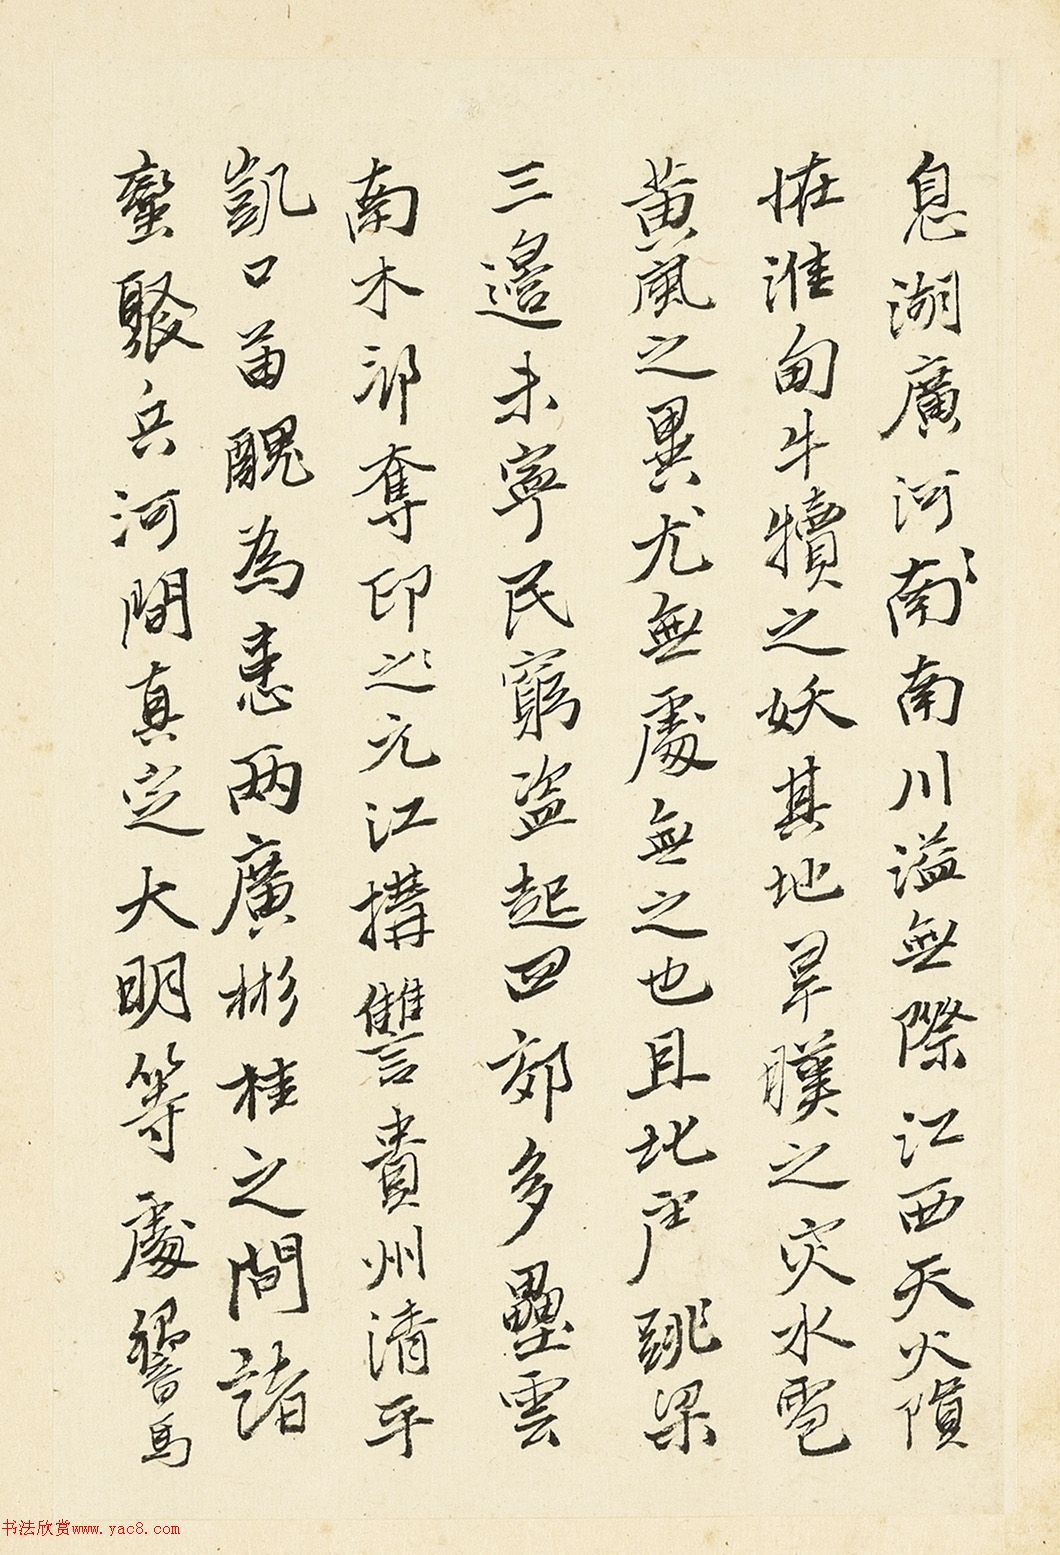 息湖廣河南南川溢無際江西天火隕
恠淮甸牛犢之妖其地旱暵之灾水雹
黃風之異尤無處無之也且北虜跳梁
三邊未寧民窮盜起四郊多壘雲
南木邦奪印之元江搆讐貴州清平
凱口苗醜為患两廣彬桂之間諸
蠻聚兵河間真定大明等處響馬
书法欣赏www.yac8.com